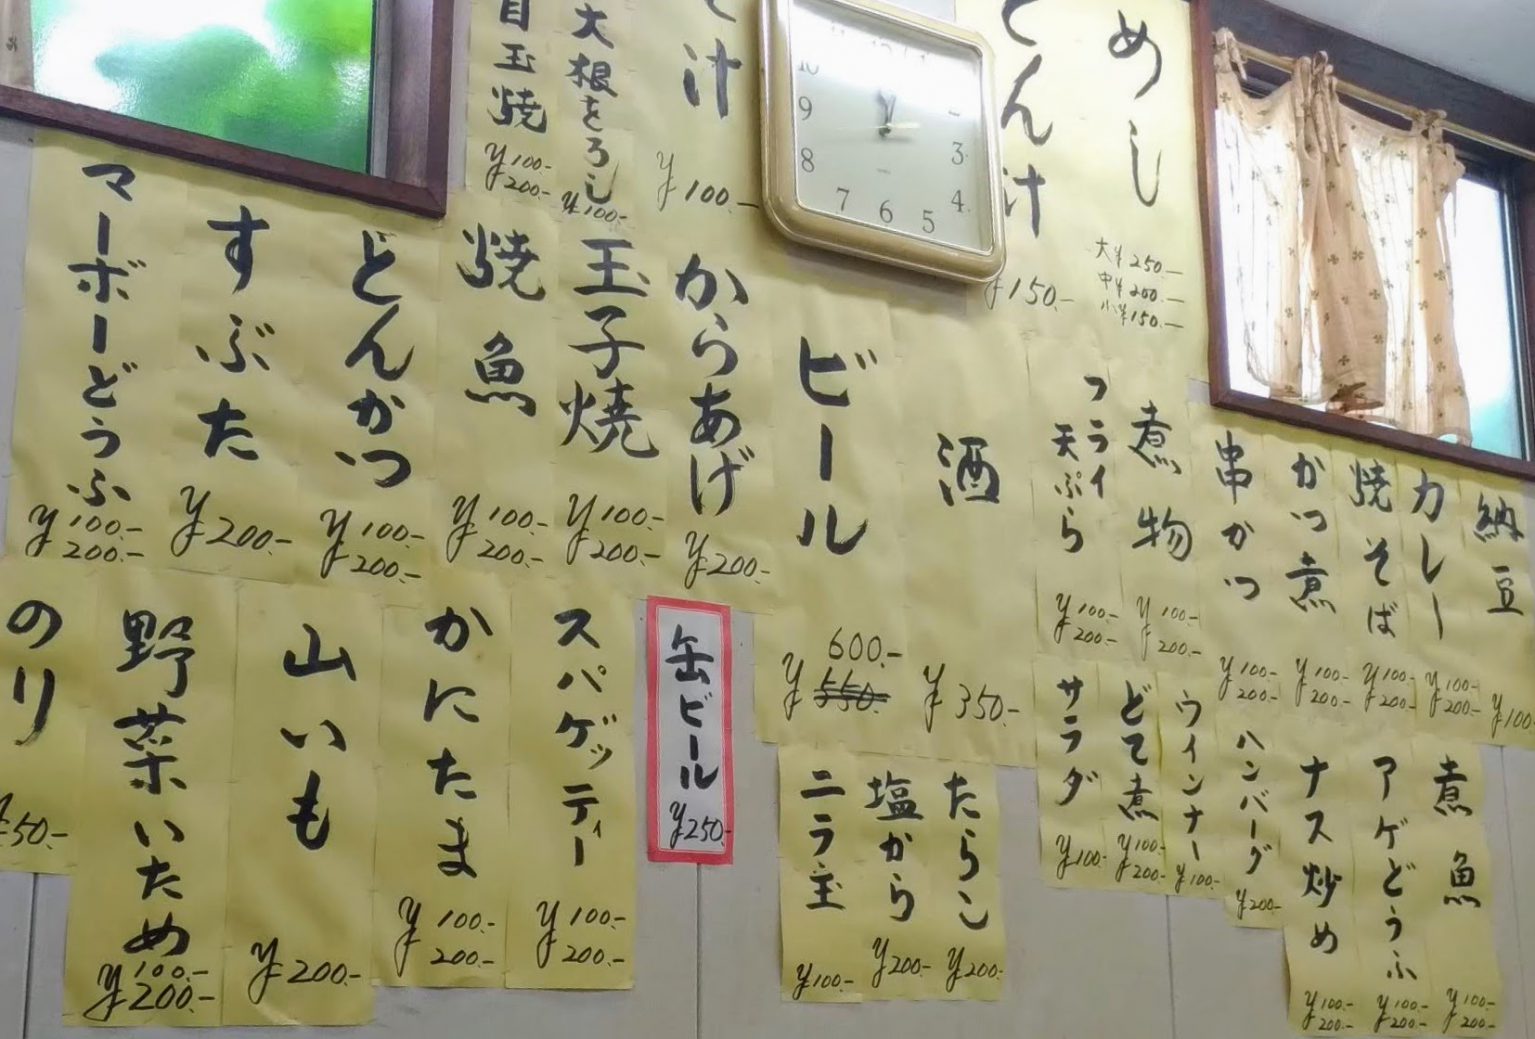 めし
大¥250.-
中¥200.-
小¥150.-
とん汁
¥150.-
汁
¥100.-
大根をろし
¥100.-
目玉焼
¥100.-
200.-
10
9
8
7
6
5
4
3
納豆
¥100
カレー
¥100.-
200.-
焼そば
¥100.-
200.-
かつ煮
¥100.-
200.-
串かつ
¥100.-
200.-
煮物
¥100.-
200.-
フライ
天ぷら
¥100.-
200.-
酒
¥350.-
ビール
600.-
¥550.-
からあげ
¥200.-
玉子焼
¥100.-
200.-
焼魚
¥100.-
200.-
とんかつ
¥100.-
200.-
すぶた
¥200.-
マーボーどうふ
¥100.-
200.-
煮魚
¥100.-
200.-
アゲどうふ
¥100.-
200.-
ナス炒め
¥100.-
200.-
ハンバーグ
¥200.-
ウインナー
¥100.-
どて煮
¥100.-
200.-
サラダ
¥100.-
たらこ
¥200.-
塩から
¥200.-
ニラ玉
¥100.-
缶ビール
¥250.-
スパゲッティー
¥100.-
200.-
かにたま
¥100.-
200.-
山いも
¥200.-
野菜いため
¥100.-
200.-
のり
¥50.-